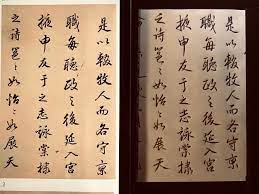 是以輟牧人而各守京
職每聽政之後延入宮
掖申友于之志詠棠棣
之詩邕〻如怡〻如展天
是以輟牧人而各守京
職每聽政之後延入宮
掖申友于之志詠棠棣
之詩邕〻如怡〻如展天